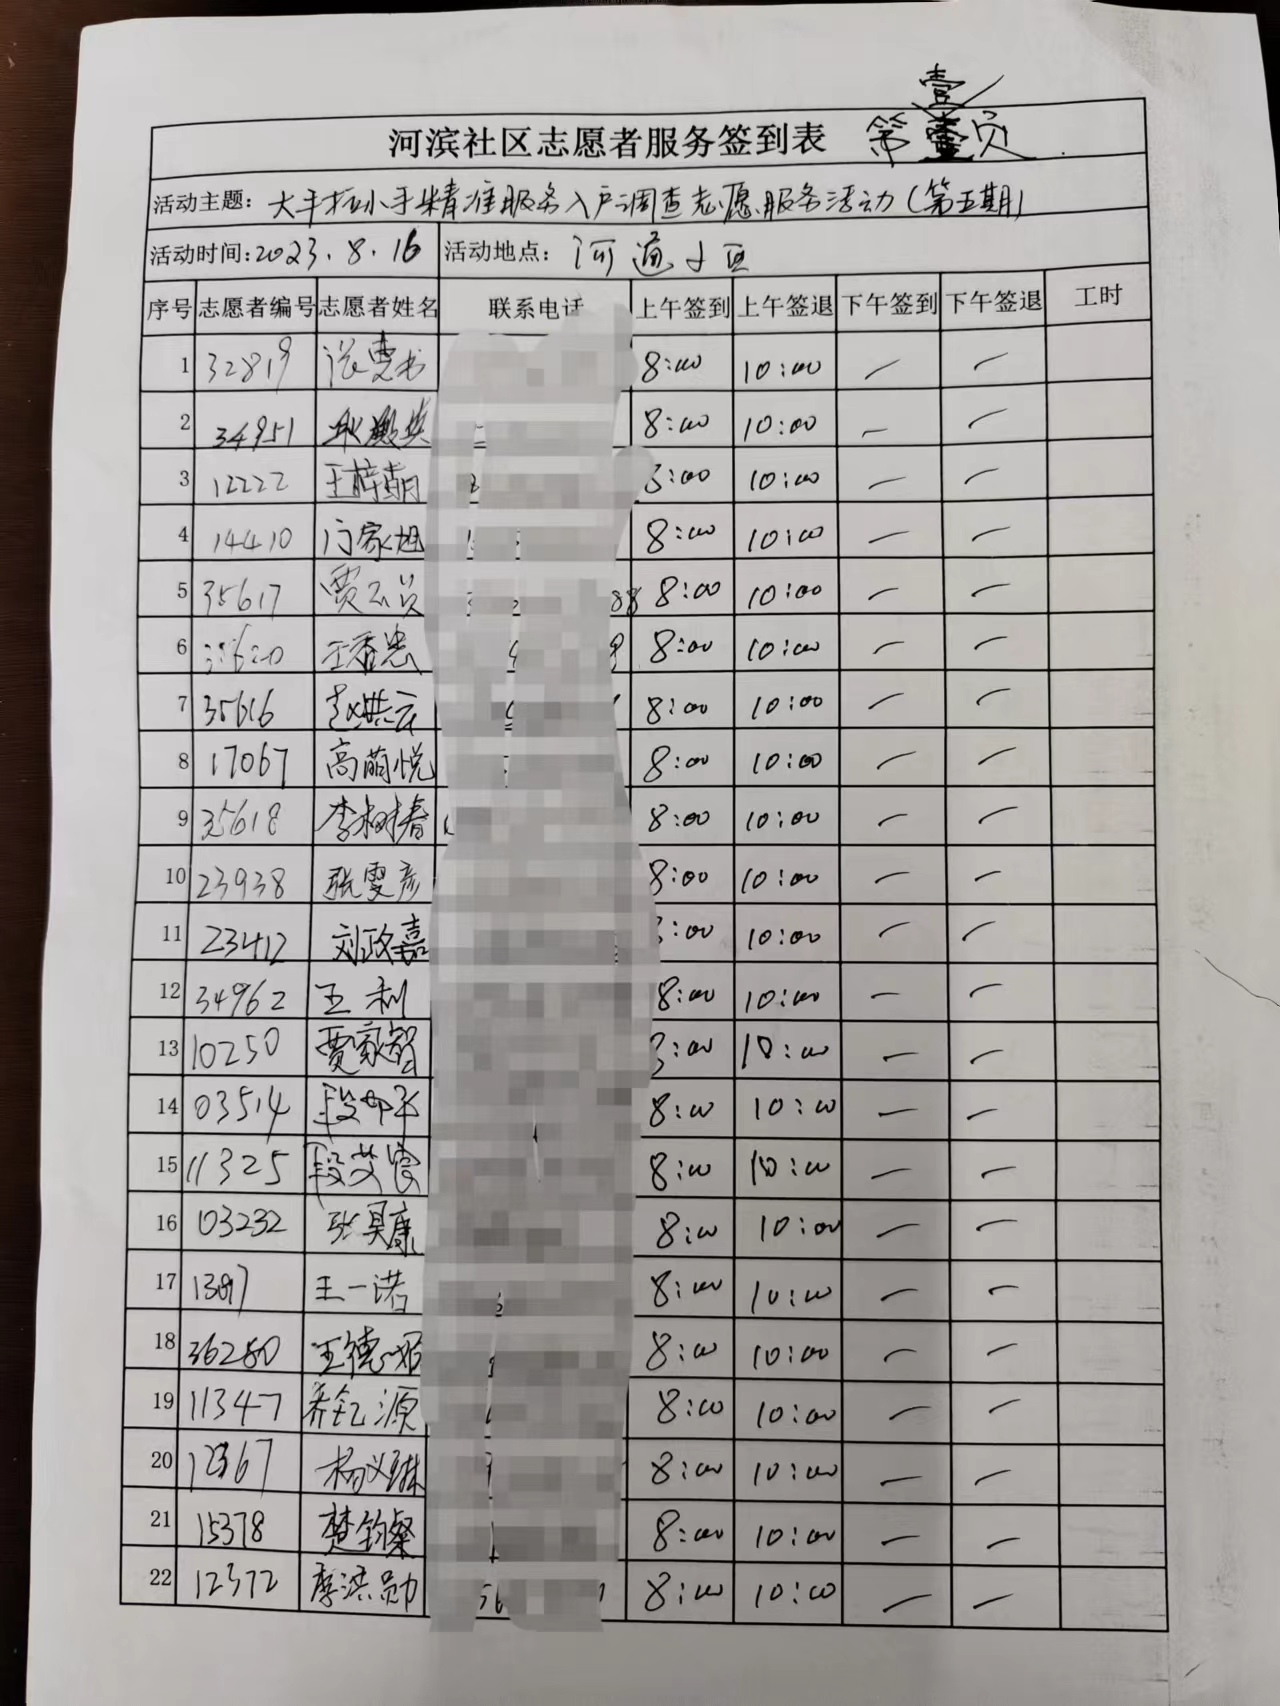 壹
河滨社区志愿者服务签到表 第壹页
活动主题: 大手拉小手精准服务入户调查志愿服务活动(第五期)
活动时间:2023.8.16 活动地点: 河 道 小 区
序号 志愿者编号 志愿者姓名 联系电话 上午签到 上午签退 下午签到 下午签退 工时
1 32819 张雯书 8:00 10:00 — —
2 34951 8:00 10:00 — —
3 12222 王梓朝 8:00 10:00 — —
4 14410 闫家旭 8:00 10:00 — —
5 35617 贾 88 8:00 10:00 — —
6 王香忠 8:00 10:00 — —
7 35616 赵洪云 8:00 10:00 — —
8 17067 高萌悦 8:00 10:00 — —
9 35618 李树春 8:00 10:00 — —
10 23938 张雯彦 8:00 10:00 — —
11 23412 刘政嘉 :00 10:00 — —
12 34962 王利 8:00 10:00 — —
13 10250 贾家智 :00 10:00 — —
14 03514 段 8:00 10:00 — —
15 11325 段艾 8:00 10:00 — —
16 03232 张昊康 8:00 10:00 — —
17 王一诺 8:00 10:00 — —
18 36280 王德 8:00 10:00 — —
19 11347 源 8:00 10:00 — —
20 12367 杨义琳 8:00 10:00 — —
21 15378 楚钧粲 8:00 10:00 — —
22 12372 李洪勋 8:00 10:00 — —